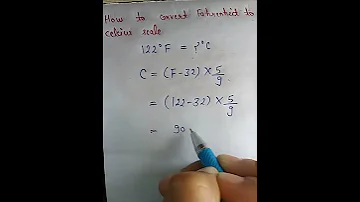 How to convert Fahrenheit to
celcius scale
122°F = ?°C
C = (F-32) × 5/9
= (122-32) × 5/9
= 90